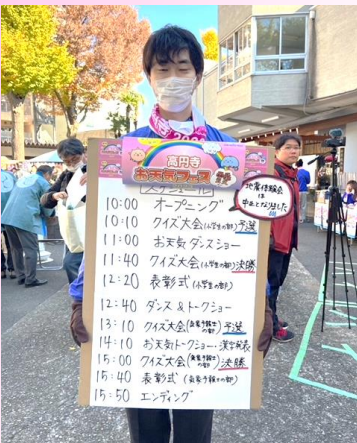 高円寺
お天気フェス
スケジュール
地震体験会は
中止となりました
10:00 オープニング
10:10 クイズ大会(小学生の部)予選
11:00 お天気ダンスショー
11:40 クイズ大会(小学生の部)決勝
12:20 表彰式(小学生の部)
12:40 ダンス&トークショー
13:10 クイズ大会(気象予報士の部)予選
14:10 お天気トークショー・漢字発表
15:00 クイズ大会(気象予報士の部)決勝
15:40 表彰式(気象予報士の部)
15:50 エンディング